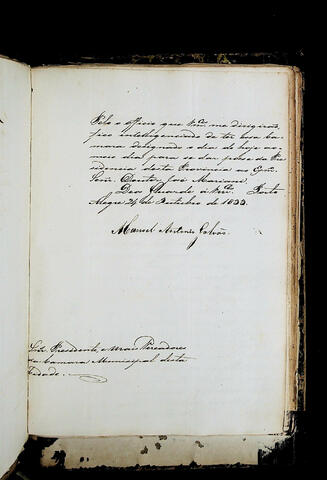 Pelo o officio que Vmces me dirigirão,
fico intelligenciado de ter essa Ca-
mara designado o dia de hoje ao
meio dia para se dar posse da Pre-
sidencia desta Provincia ao Exmo
Senr. Doutor José Mariani.
Deos Guarde a Vmces. Porto
Alegre 24 de Outubro de 1833.
Manoel Antonio Galvão
Snrs. Presidente, e mais Vereadores
da Camara Municipal desta
Cidade.